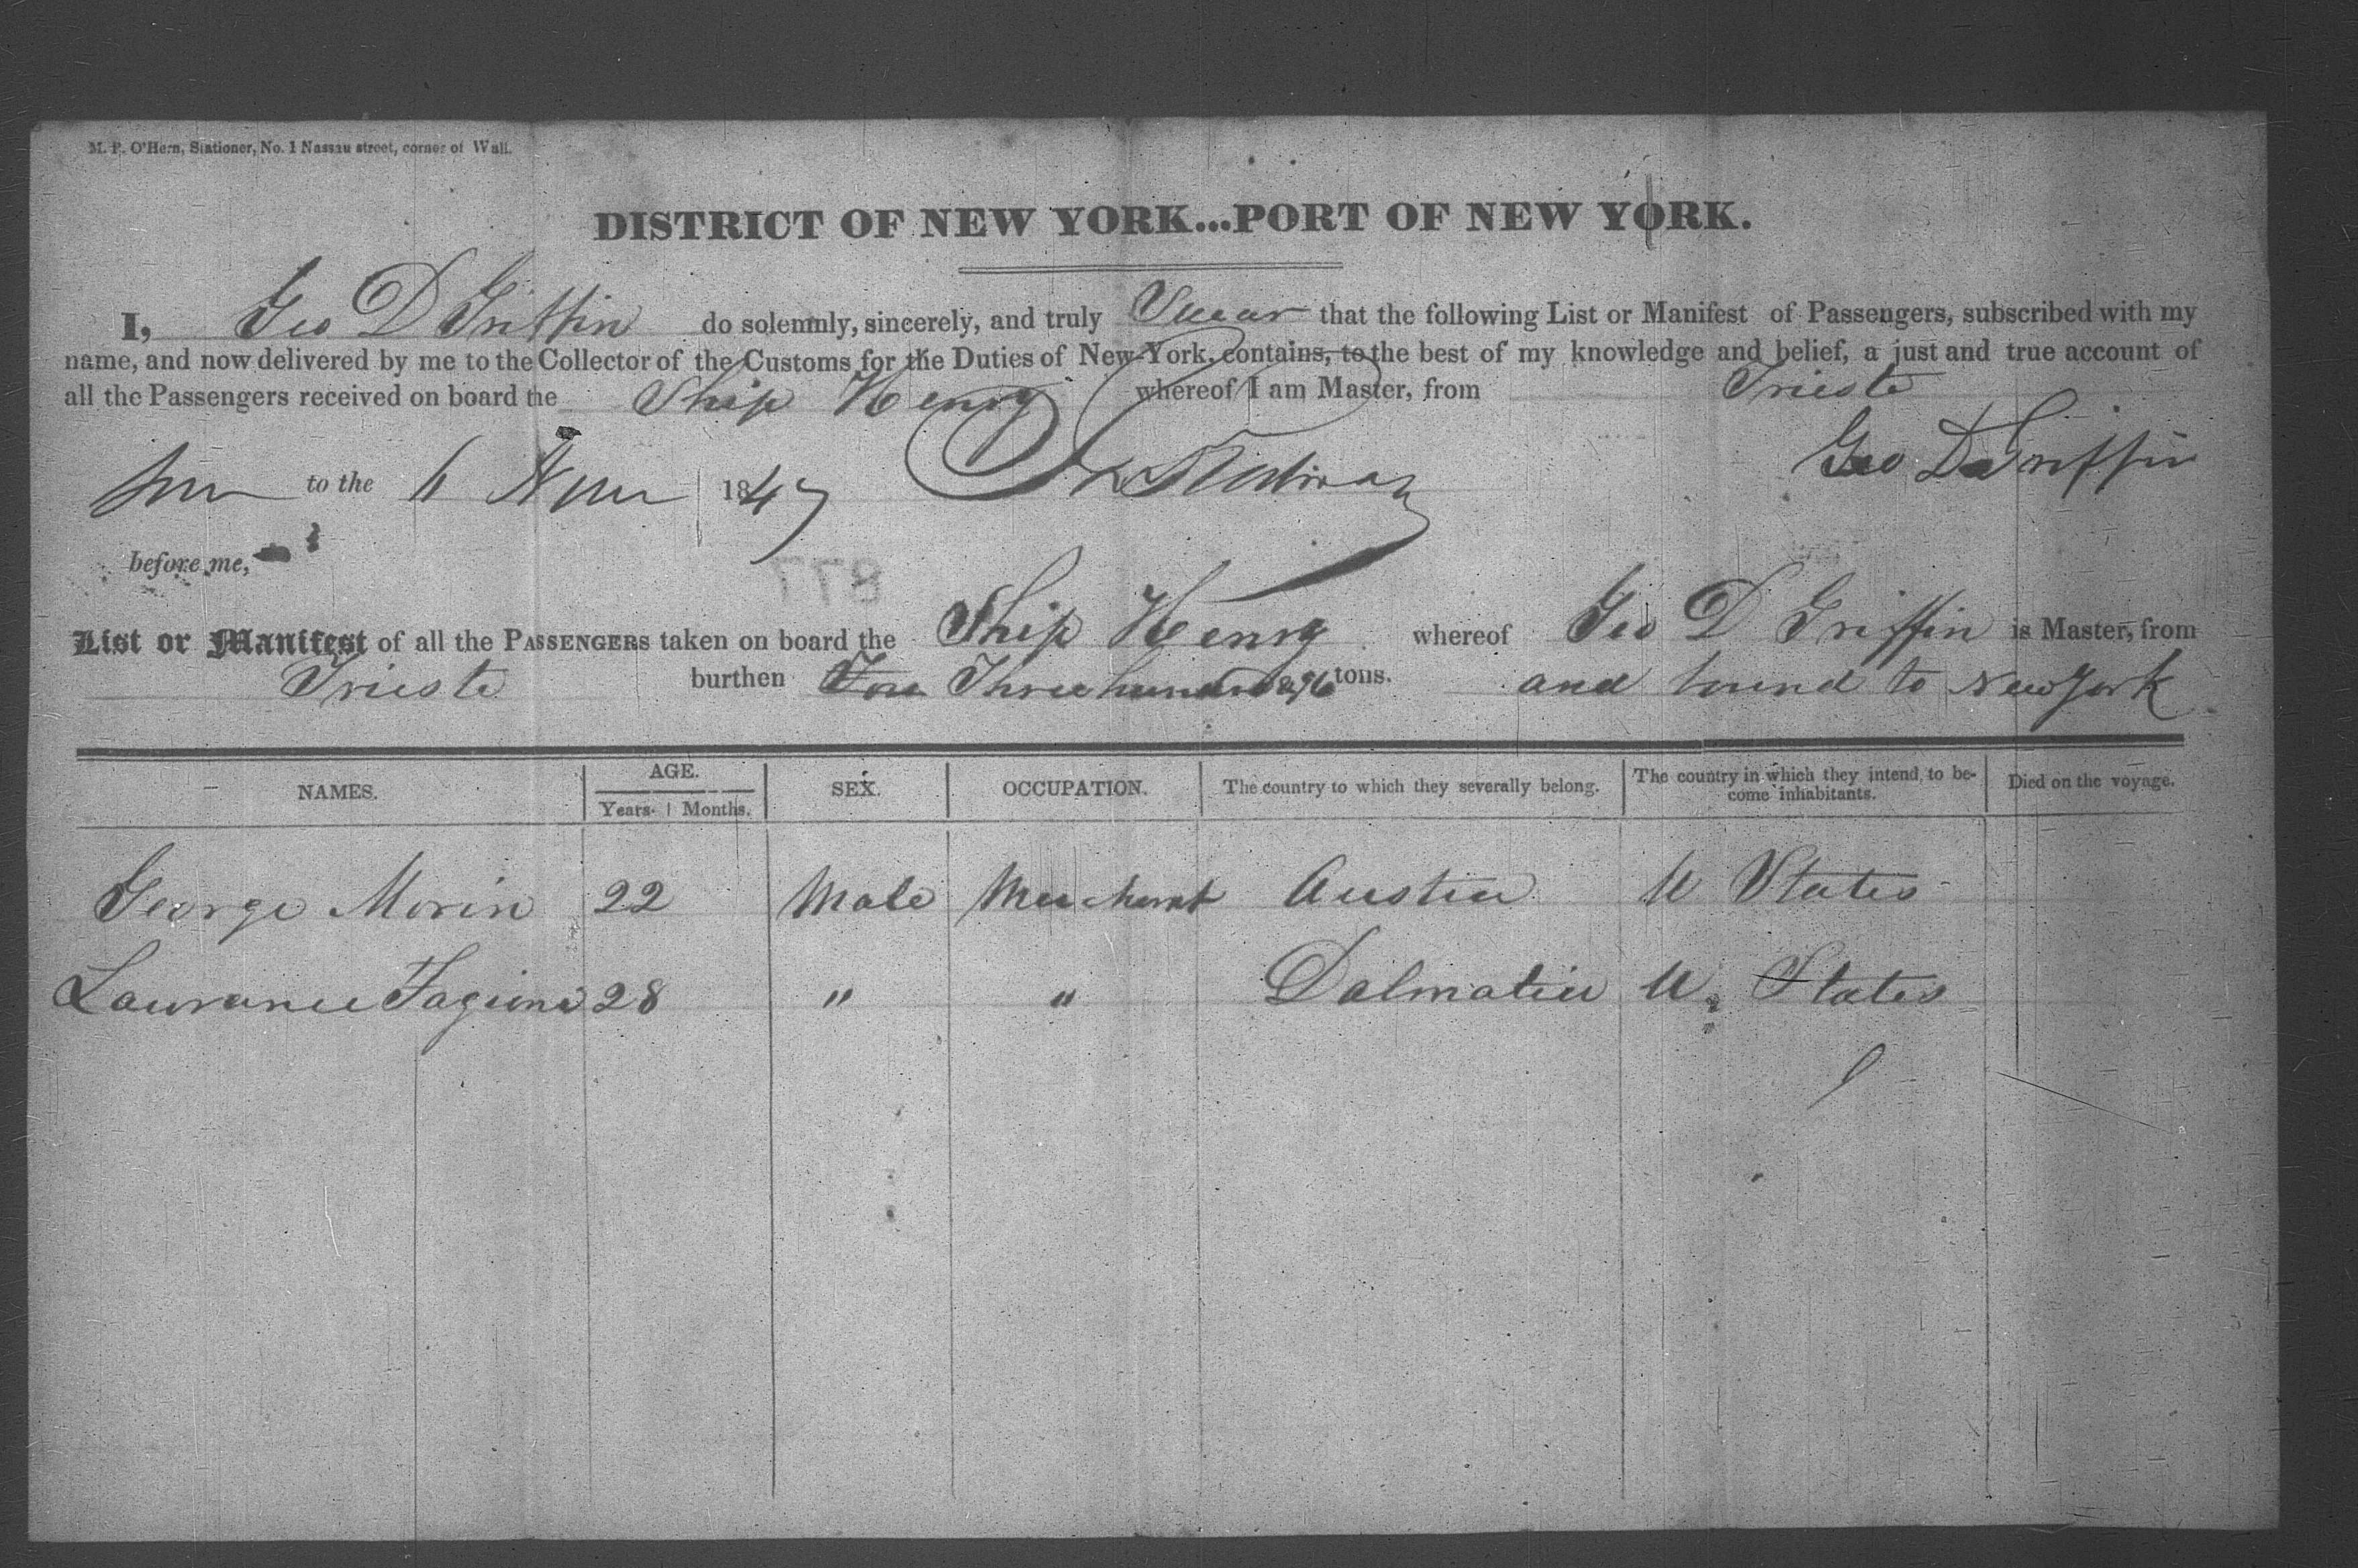 M. P. O'Hern, Stationer, No. 1 Nassau street, corner of Wall.
DISTRICT OF NEW YORK...PORT OF NEW YORK.
I, Geo D Griffin do solemnly, sincerely, and truly Swear that the following List or Manifest of Passengers, subscribed with my
name, and now delivered by me to the Collector of the Customs for the Duties of New-York, contains, to the best of my knowledge and belief, a just and true account of
all the Passengers received on board the Ship Henry whereof I am Master, from Trieste
to the 6 1847 Geo D Griffin
before me,
877
List or Manifest of all the PASSENGERS taken on board the Ship Henry whereof Geo D Griffin is Master, from
Trieste burthen Three hundred tons. and bound to New York
NAMES. AGE. SEX. OCCUPATION. The country to which they severally belong. The country in which they intend to be-come inhabitants. Died on the voyage.
Years. Months.
George Morin 22 Male Merchant Austria U States
Lawrance 28 " " Dalmatia U. States